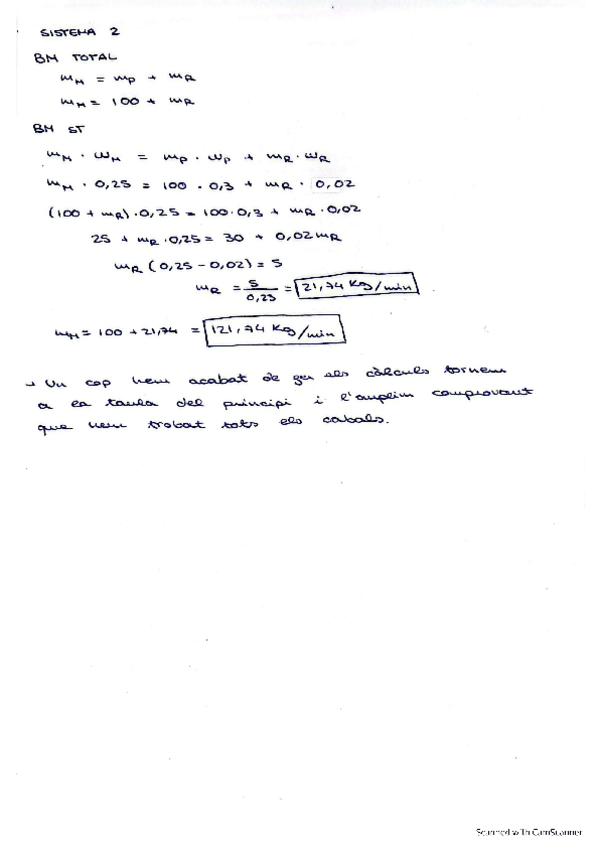 SISTEMA 2
BM TOTAL
mM = mP + mR
mM = 100 + mR
BM ST
mM · WM = mP · WP + mR · WR
mM · 0,25 = 100 · 0,3 + mR · 0,02
(100 + mR) · 0,25 = 100·0,3 + mR · 0,02
25 + mR · 0,25 = 30 + 0,02mR
mR (0,25 - 0,02) = 5
mR = 5/0,23 = 21,74 Kg/min
mM = 100 + 21,74 = 121,74 Kg/min
→ Un cop hem acabat de fer els càlculs tornem
a la taula del principi i l'omplim comprovant
que hem trobat tots els cabals.
Scanned with CamScanner